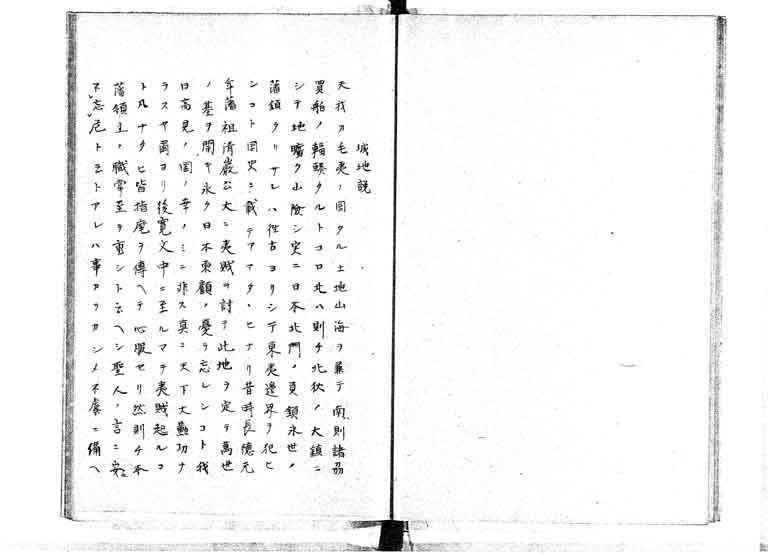 城地説
夫我カ毛夷ノ国タル土地山海ヲ兼テ南則諸州
買舶ノ輻輳タルトコロ北ハ則チ北狄ノ大鎮ニ
シテ地曠ク山険シ実ニ日本北門ノ負鎖永世ノ
藩鎮タリサレハ往古ヨリシテ東夷邊界ヲ犯セ
シコト国史ニ載テアマタヽヒナリ昔時長億元
年藩祖清巌公大ニ夷賊ヲ討テ此地ヲ定テ萬世
ノ基ヲ開キ永ク日本東顧ノ憂ヲ忘レシコト我
日高見ノ国ノ幸ノミニ非ス真ニ天下大勲功ナ
ラスヤ爾ヨリ後寛文中ニ至ルマテ夷賊起ルコ
ト凡ナタヒ皆指麾ヲ傳ヘテ心服セリ然則チ本
藩領主ノ職掌至テ重シト云ヘシ聖人ノ言ニ安
不忘危トモトアレハ事カリカンメ不虞ニ備ヘ